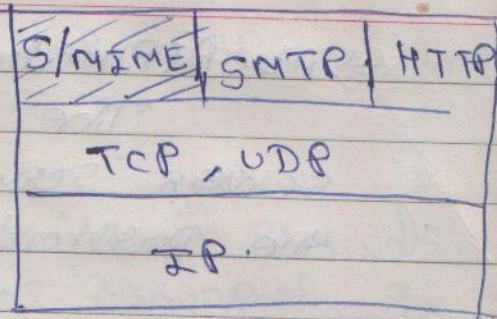 S/MIME SMTP HTTP
TCP, UDP
IP.